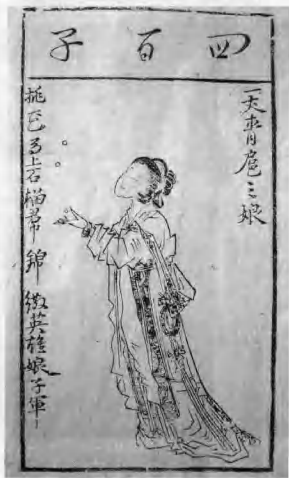 四百子
一丈青扈三娘
桃花馬上石榴帬錦繖英雄娘子軍